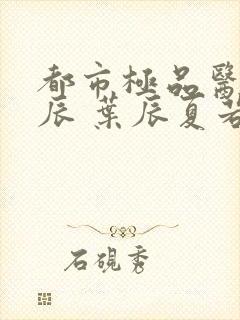 都市極品醫
辰 葉辰夏若
石硯秀